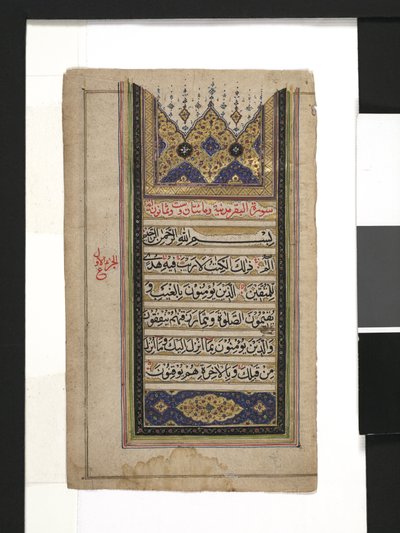 سورة البقرة مدنية وهي مائتان وست وثمانون اية
بِسْمِ اللهِ الرَّحْمٰنِ الرَّحِيمِ
الٓمٓ ذٰلِكَ الْكِتٰبُ لَا رَيْبَ فِيهِ هُدًى
لِلْمُتَّقِينَ الَّذِينَ يُؤْمِنُونَ بِالْغَيْبِ وَ
يُقِيمُونَ الصَّلٰوةَ وَمِمَّا رَزَقْنَاهُمْ يُنْفِقُونَ
وَالَّذِينَ يُؤْمِنُونَ بِمَا اُنْزِلَ اِلَيْكَ وَمَا اُنْزِلَ
مِنْ قَبْلِكَ وَبِالْاٰخِرَةِ هُمْ يُوقِنُونَ
الجزء الاول